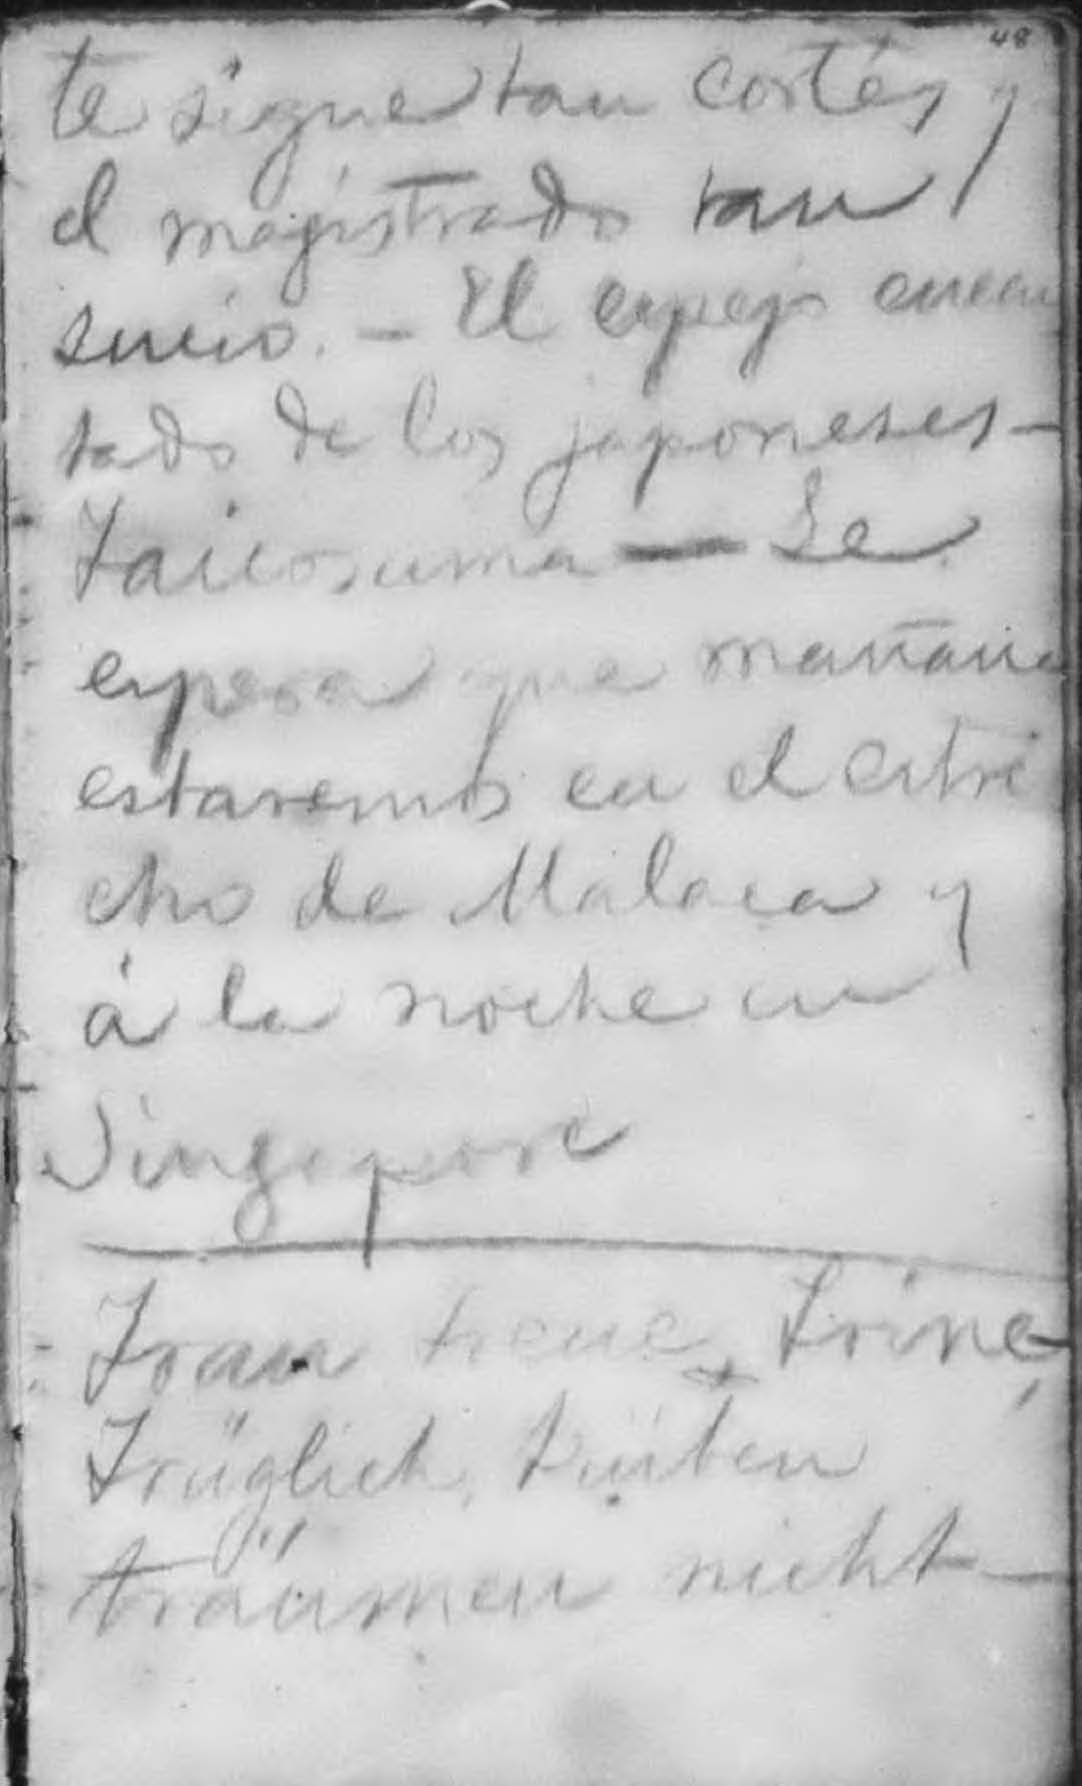 48
te sigue tan cortés y
el magistrado tan
sucio. - El espejo encan
tado de los japoneses -
Taicosuma — Se
espera que mañana
estaremos en el estre
cho de Malaca y
á la noche en
Singapore
Trau treue Trine,
Trüglich,
träumen nicht -